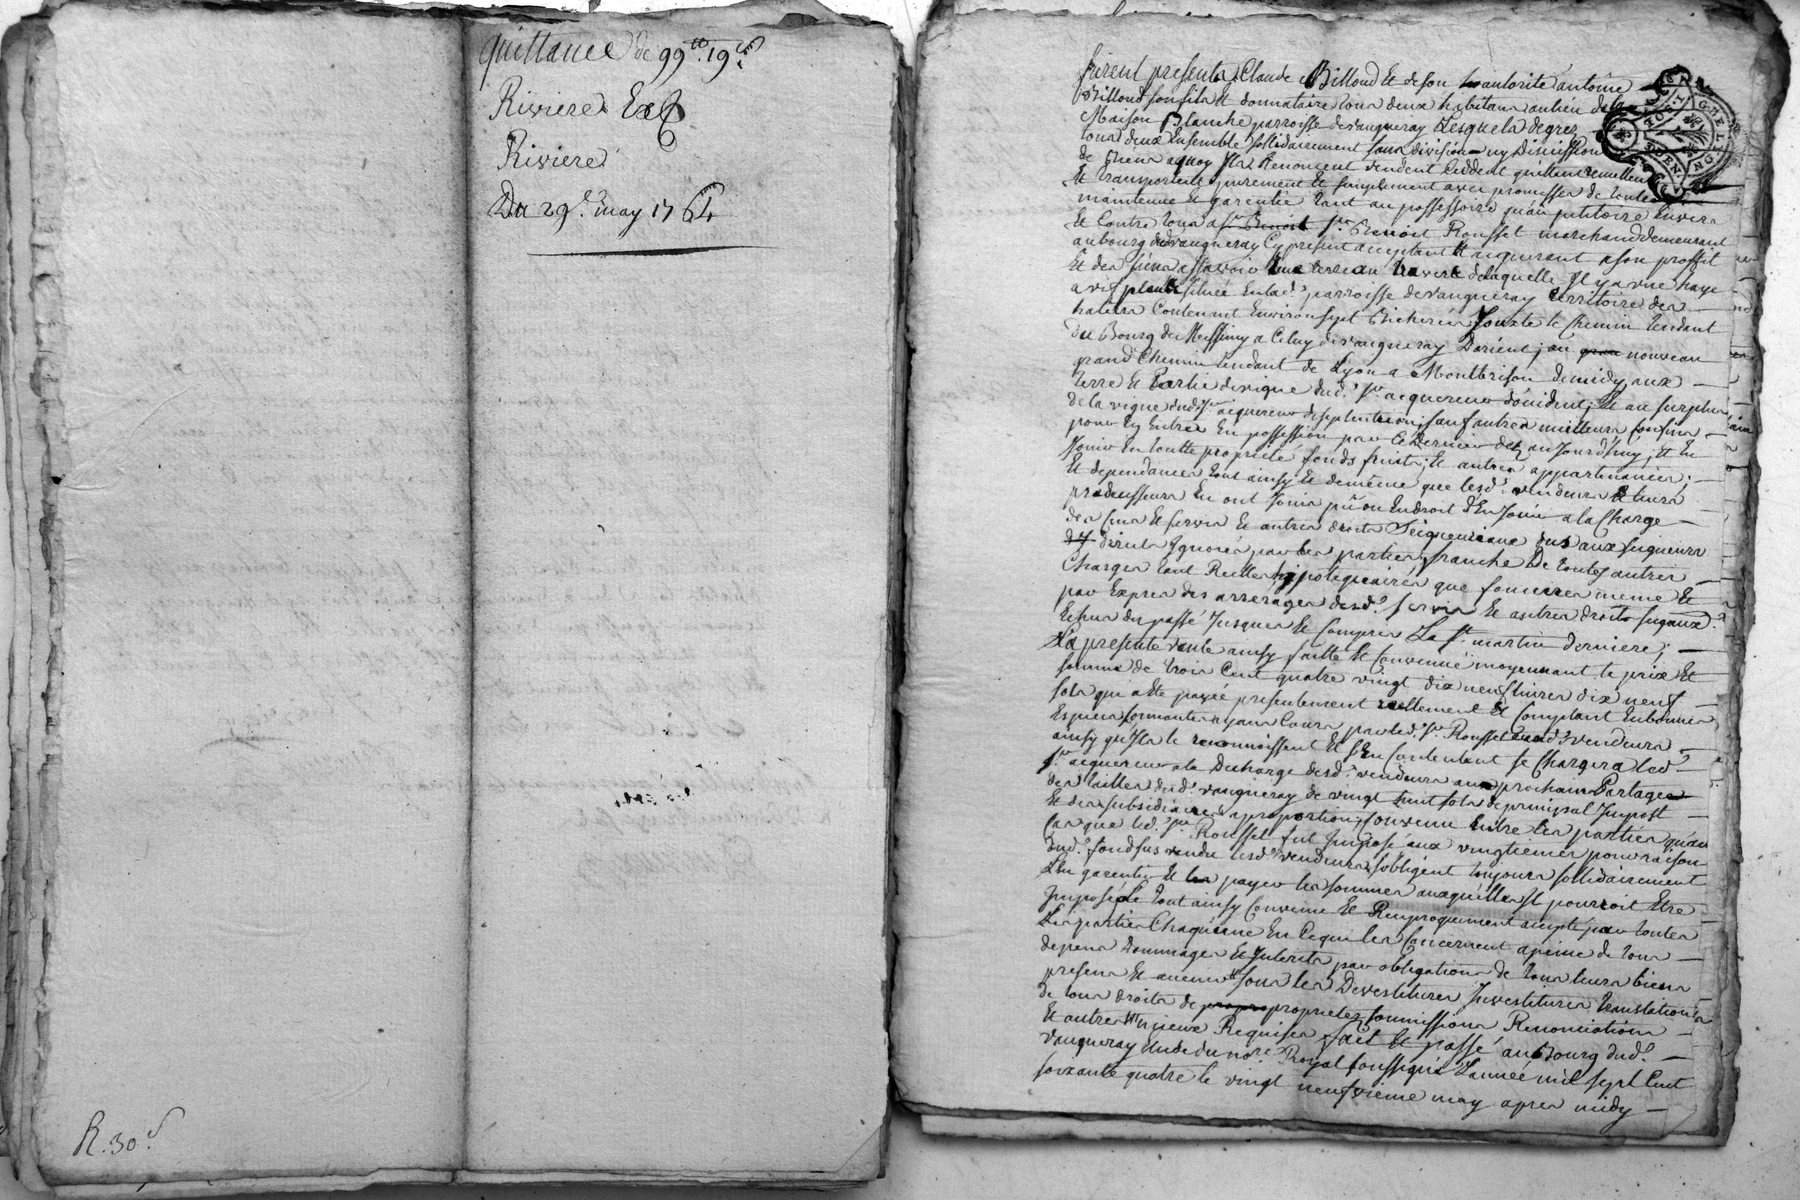 quittance de 99tt 19s
Riviere Ex
Riviere
Du 29e may 1764
R. 30s
furent presents Claude Billoud Et de son hautorité antoine
Billoud son fils Et donnataire tous deux habitans au lieu de la
Maison Blanche parroisse de vaugneray Lesquels de grez
tous deux Ensemble sollidairement sans division ny Discussion
de biens a quoy Ils Renoncent vendent Ceddent quittent remettent
Et transportent purement Et simplement avec promesses de toute
maintenue Et garentie tant au possessoire qu'au petitoire Envers
Et Contre tous a sr Benoist sr Benoist Rousset marchand demeurant
au bourg dud vaugneray Cy present acceptant Et aiquerant a son proffit
Et des siens assavoir Une terre au travers de laquelle Il y a une haye
a vif plant située En lad. parroisse de vaugneray territoire des
hateurs Contenant Environ sept Bicherées Jouxte le Chemin tendant
du Bourg de Messimy a Celuy de vaugneray D'orient; au nouveau
grand Chemin tendant de Lyon a Montbrison de midy, aux
terre Et Partie de vigne dud. sr acquereur d'occident; Et au surplus
de la vigne dud. sr aiquereur de septentrion, sauf autres meilleurs Confins
pour Ey Entrer En possession par Ce Dernier dez aujourd'huy; Et En
Jouir En toutte propriete fonds fruits; Et autres appartenances;
Et dependances tout ainsy Et de même que lesd. vendeurs Et leurs
predecesseurs En ont Joui pû ou Endroit d'En Jouir a la Charge
des Cens Et servis Et autres droits Seigneuriaux dus aux seigneurs
directs Ignorés par les parties, franche De toutes autres
Charges tant Reelles hipotequaires que foncieres meme Et
par Exprés des arrerages desd. servis Et autres droits
Echus du passé Jusques Et Compris La St martin derniere;
La presente vente ainsy faitte Et Convenue moyennant le prix Et
somme de trois Cent quatre vingt dix neuf livres dix neuf
sols qui a Eté payée presentement réellement Et Comptant En bonnes
Especes sonnantes ayans Cours par led. sr Rousset auxd. vendeurs
ainsy qu'Ils le reconnoissent Et s'En Contentent se Chargera led.
sr aiquereur a la Decharge desd. vendeurs aux prochains Partages
des tailles dud. vaugneray de vingt huit sols de principal Impost
Et des subsidiaires a proportion, Convenu Entre les parties qu'au
Cas que led. sr Rousset fut Imposé aux vingtiemes pour raison
dud. fonds sus vendu lesd. vendeurs s'obligent toujours sollidairement
d'En garentir Et payer les sommes auxquelles Il pourroit Etre
Imposé Le tout ainsy Convenu Et Reciproquement accepté par toutes
Les parties Chaqu'une En Ce qui les Concernent a peine de tous
depens Dommages Et Interets par obligations de tous leurs biens
presens Et avenir sous les Devestitures Investitures translations
de tous droits de proprietez soumissions Renonciations
Et autres Requises, fait Et passé au bourg dud.
vaugneray Etude du nore Royal soussigné L'année mil sept Cent
soixante quatre le vingt neufvieme may apres midy